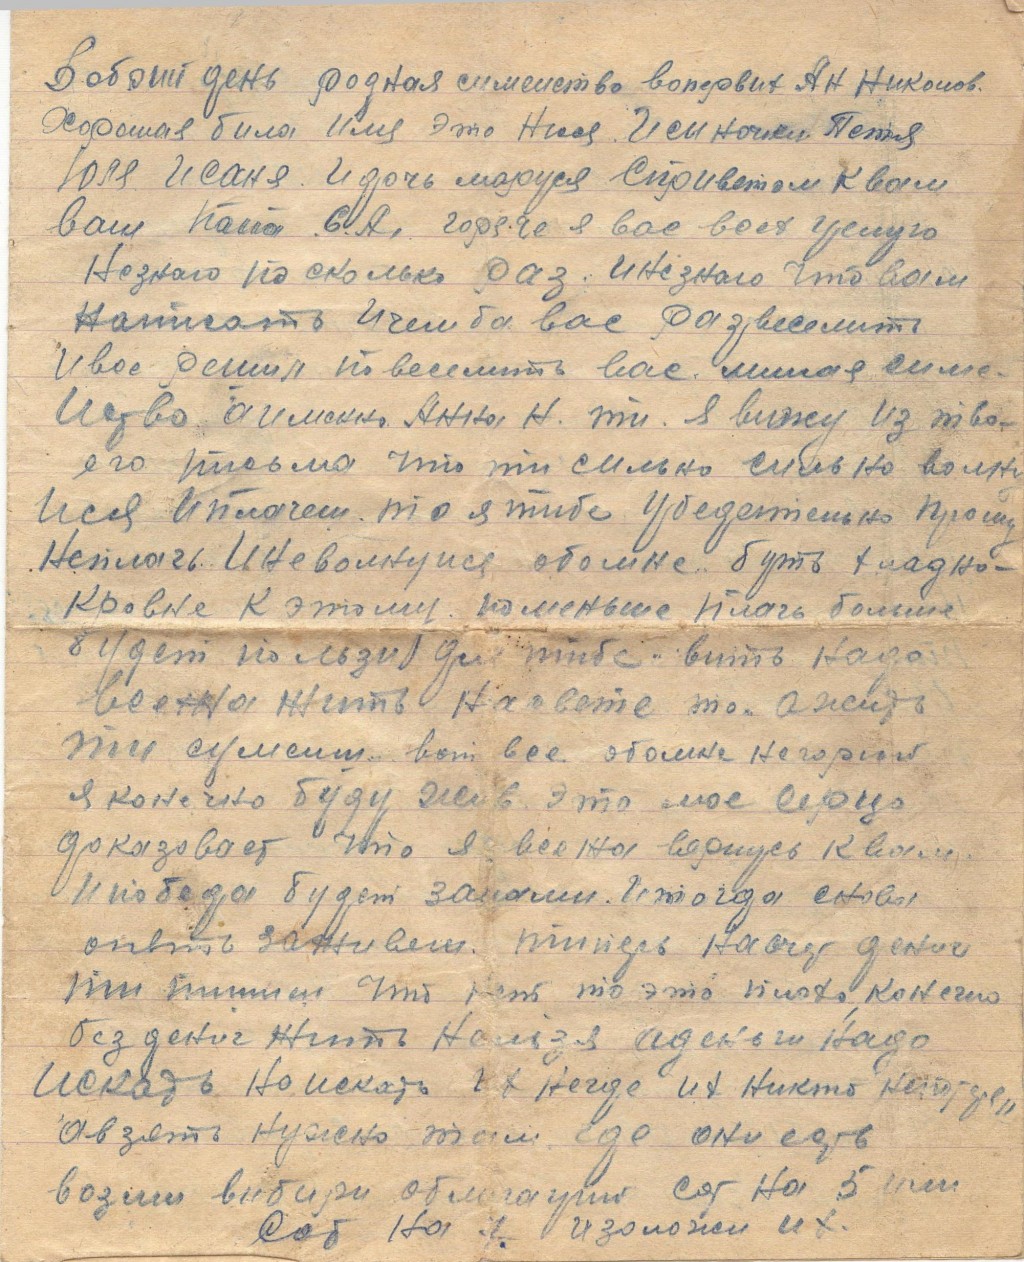 Добрий день родная симейство вопервих Ан Николов.
Хорошая била имя это Нися. Исыночки Петя
Юля Исаня. Идочь маруся Сприветом Квам
ваш Папа С.А. горяче я вас всех целую
Незнаю по сколько раз. Инезнаю Что вам
Написать Ичемба вас развеселить
Ивсе решил повеселить вас. милая симе-
Иство. аименно Анна Н. ти. я вижу Из тво-
его письма Что ти сильно сильно волну
Ися Иплачеш. то я тибе Убедетельно прошу
Неплачь. Иневолнуися обомне. буть хладно-
Кровне К этому. поменьше плачь больше
будет пользи для тибе. вить надо
всежа жить Насвете то. ажить
ти сумееш. вот все обомне негорюй
я конечно буду жив это мое серцо
доказовает Что я всежа вернусь Квам.
Ипобеда будет занами. Итогда снови
опять заживем. типерь насчет дениг
ти пишиш Что нет то это плохо, конечно
без дениг жить Нельзя аденьги Надо
Искать Ноискать их негде их никто
авзять нужно там где они есть
возми вибири облигации сот на 5 или
Сот На и заложи их.